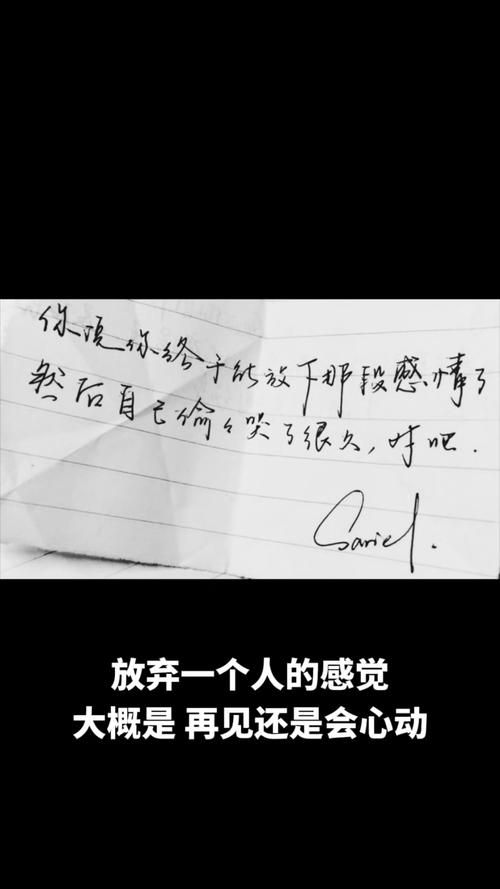 你说你终于能放下那段感情了
然后自己偷々哭了很久，对吧.
Sariel.
放弃一个人的感觉
大概是 再见还是会心动